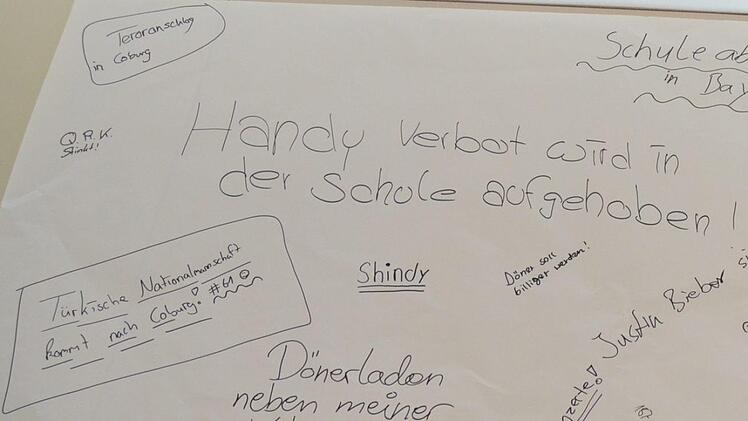 Teroranschlag
in Coburg
Schule ab
in Bay
Q.A.K.
Stinkt!
Handy Verbot wird in
der Schule aufgehoben!
Türkische Nationalmannschaft
kommt nach Coburg! #61
Shindy
Döner soll
billiger werden!
Justin Bieber
Dönerladen
neben meiner